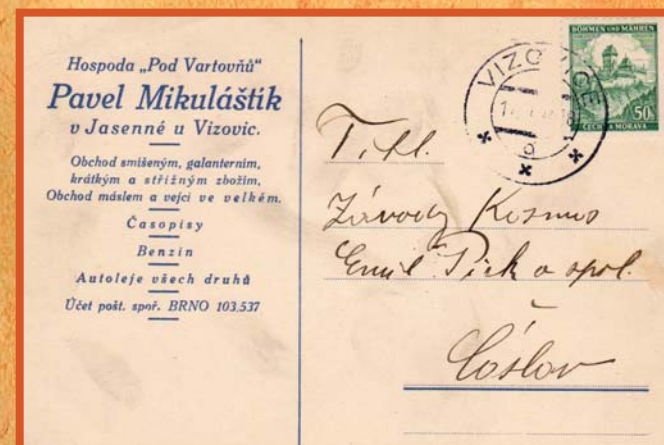 Hospoda „Pod Vartovňů"
Pavel Mikuláštik
v Jasenné u Vizovic.
Obchod smíšeným, galanterním,
krátkým a střižným zbožím,
Obchod máslem a vejci ve velkém.
Časopisy
Benzin
Autoleje všech druhů
Účet pošt. spoř. BRNO 103.537
BÖHMEN UND MÄHREN
50
ČECHY A MORAVA
VIZOVICE
Titl.
Závody Kosmos
Emil Pick a spol.
Čáslav